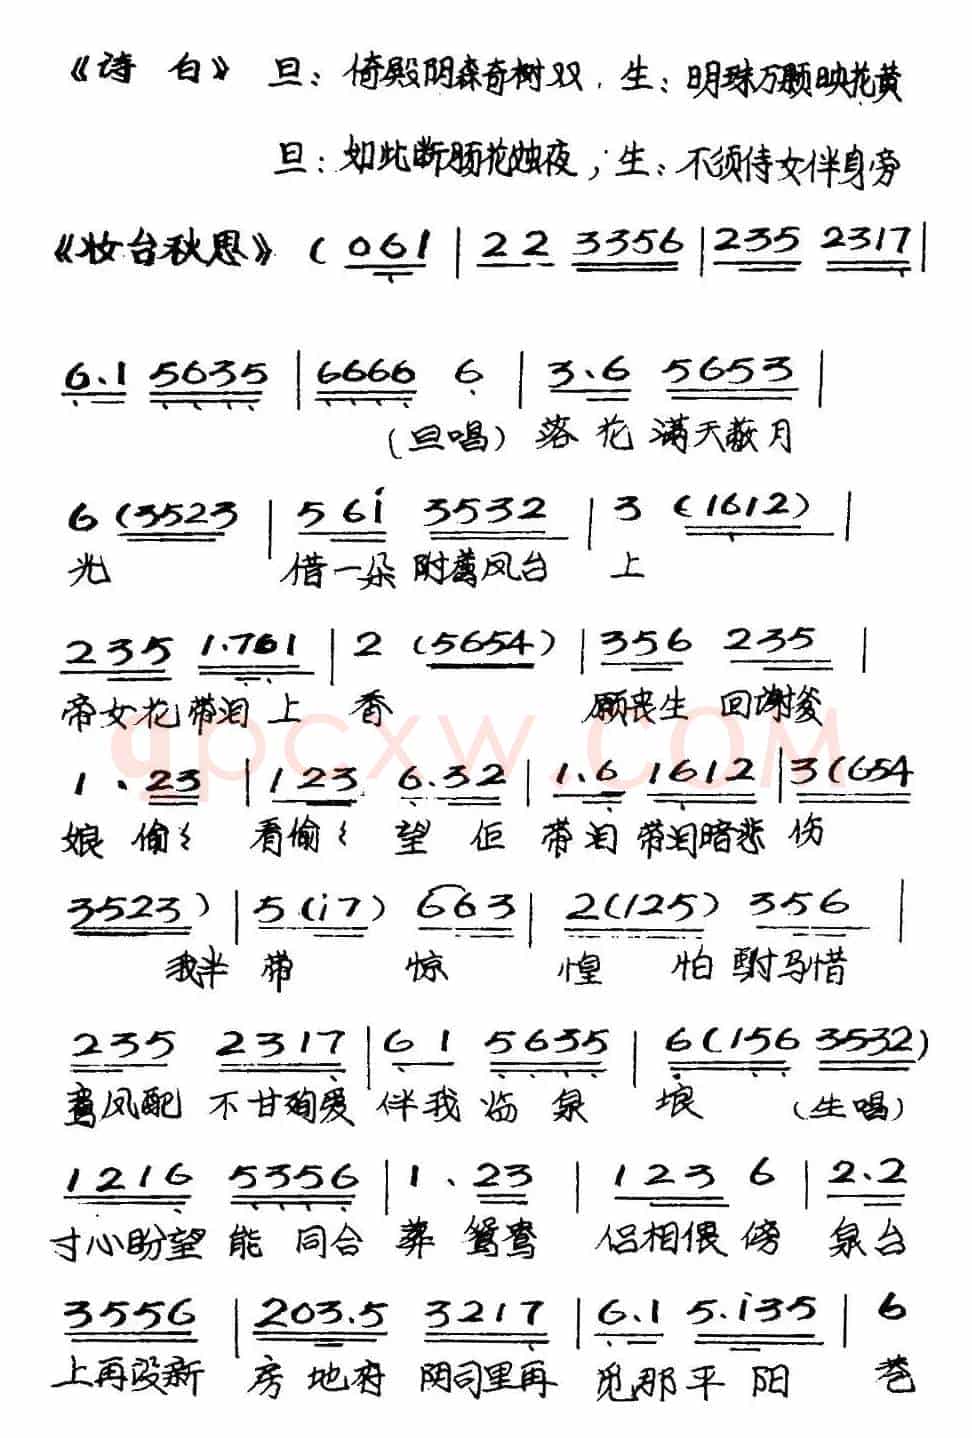 《诗白》 旦：倚殿阴森奇树双，生：明珠万颗映花黄
旦：如此断肠花烛夜，生：不须侍女伴身旁
《妆台秋思》 (061 | 22 3356 | 235 2317 |
6.1 5635 | 6666 6 | 3.6 5653 |
(旦唱) 落花满天蔽月
6 (3523 | 56i 3532 | 3 (1612) |
光 借一朵附荐凤台 上
235 1.761 | 2 (5654) | 356 235 |
帝女花带泪上 香 愿丧生 回谢爹
1 . 23 | 123 6.32 | 1.6 1612 | 3(654
娘 偷ミ 看偷ミ 望 佢 带泪 带泪暗悲 伤
qpcxw.COM
3523) | 5(i7) 663 | 2(125) 356 |
我半 带 惊 惶 怕驸马惜
235 2317 | 61 5635 | 6(156 3532)
鸾凤配 不甘殉爱 伴我 临 泉 埌 (生唱)
1216 5356 | 1 . 23 | 123 6 | 2.2
寸心盼望 能 同合 葬 鸳鸯 侣相偎 傍 泉台
3556 | 203.5 3217 | 6.1 5.i35 | 6
上再设新 房 地府 阴司里再 觅那平 阳 巷